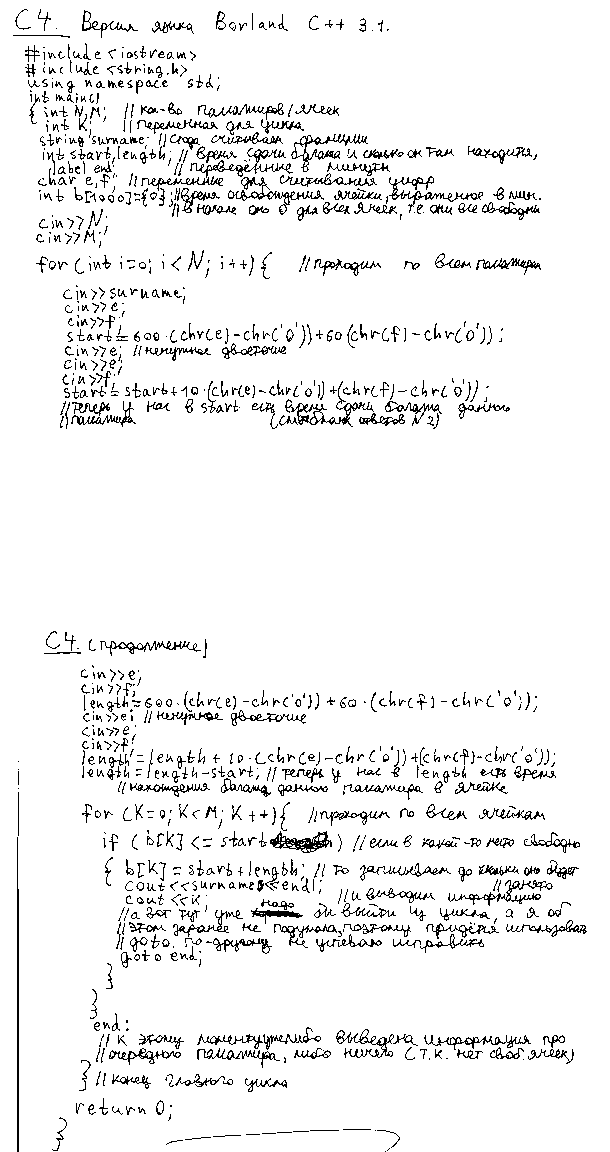 C4. Версия языка Borland C++ 3.1.
#include <iostream>
#include <string.h>
using namespace std;
int main()
{ int N,M; // кол-во пассажиров/ячеек
int K; // переменная для цикла
string surname; // сюда считываем фамилии
int start,length; // время сдачи багажа и сколько он там находится,
label end; // переведённые в минуты
char e,f; // переменные для считывания цифр
int b[1000]={0}; // время освобождения ячейки, выраженное в мин.
// в начале оно 0 для всех ячеек, т.е. они все свободны
cin>>N;
cin>>M;
for (int i=0; i<N; i++){ // проходим по всем пассажирам
cin>>surname;
cin>>e;
cin>>f;
start=600·(chr(e)-chr('0'))+60(chr(f)-chr('0'));
cin>>e; // ненужное двоеточие
cin>>e;
cin>>f;
start=start+10·(chr(e)-chr('0'))+(chr(f)-chr('0'));
// теперь у нас в start есть время сдачи багажа данного
// пассажира (см. бланк ответов N2)
C4. (продолжение)
cin>>e;
cin>>f;
length=600·(chr(e)-chr('0'))+60·(chr(f)-chr('0'));
cin>>e; // ненужное двоеточие
cin>>e;
cin>>f;
length=length+10·(chr(e)-chr('0'))+(chr(f)-chr('0'));
length=length-start; // теперь у нас в length есть время
// нахождения багажа данного пассажира в ячейке
for (K=0; K<M; K++){ // проходим по всем ячейкам
if (b[K]<=start) // если в какой-то место свободно
{ b[K]=start+length; // то записываем до скольки оно будет
cout<<surname<<endl; // занято
cout<<K; // и выводим информацию
// а вот тут уже надо бы выйти из цикла, а я об
// этом заранее не подумала, поэтому придётся использовать
// goto. По-другому не успеваю исправить
goto end;
}
}
end:
// К этому моменту уже либо выведена информация про
// очередного пассажира, либо ничего (т.к. нет своб. ячеек)
} // конец главного цикла
return 0;
}